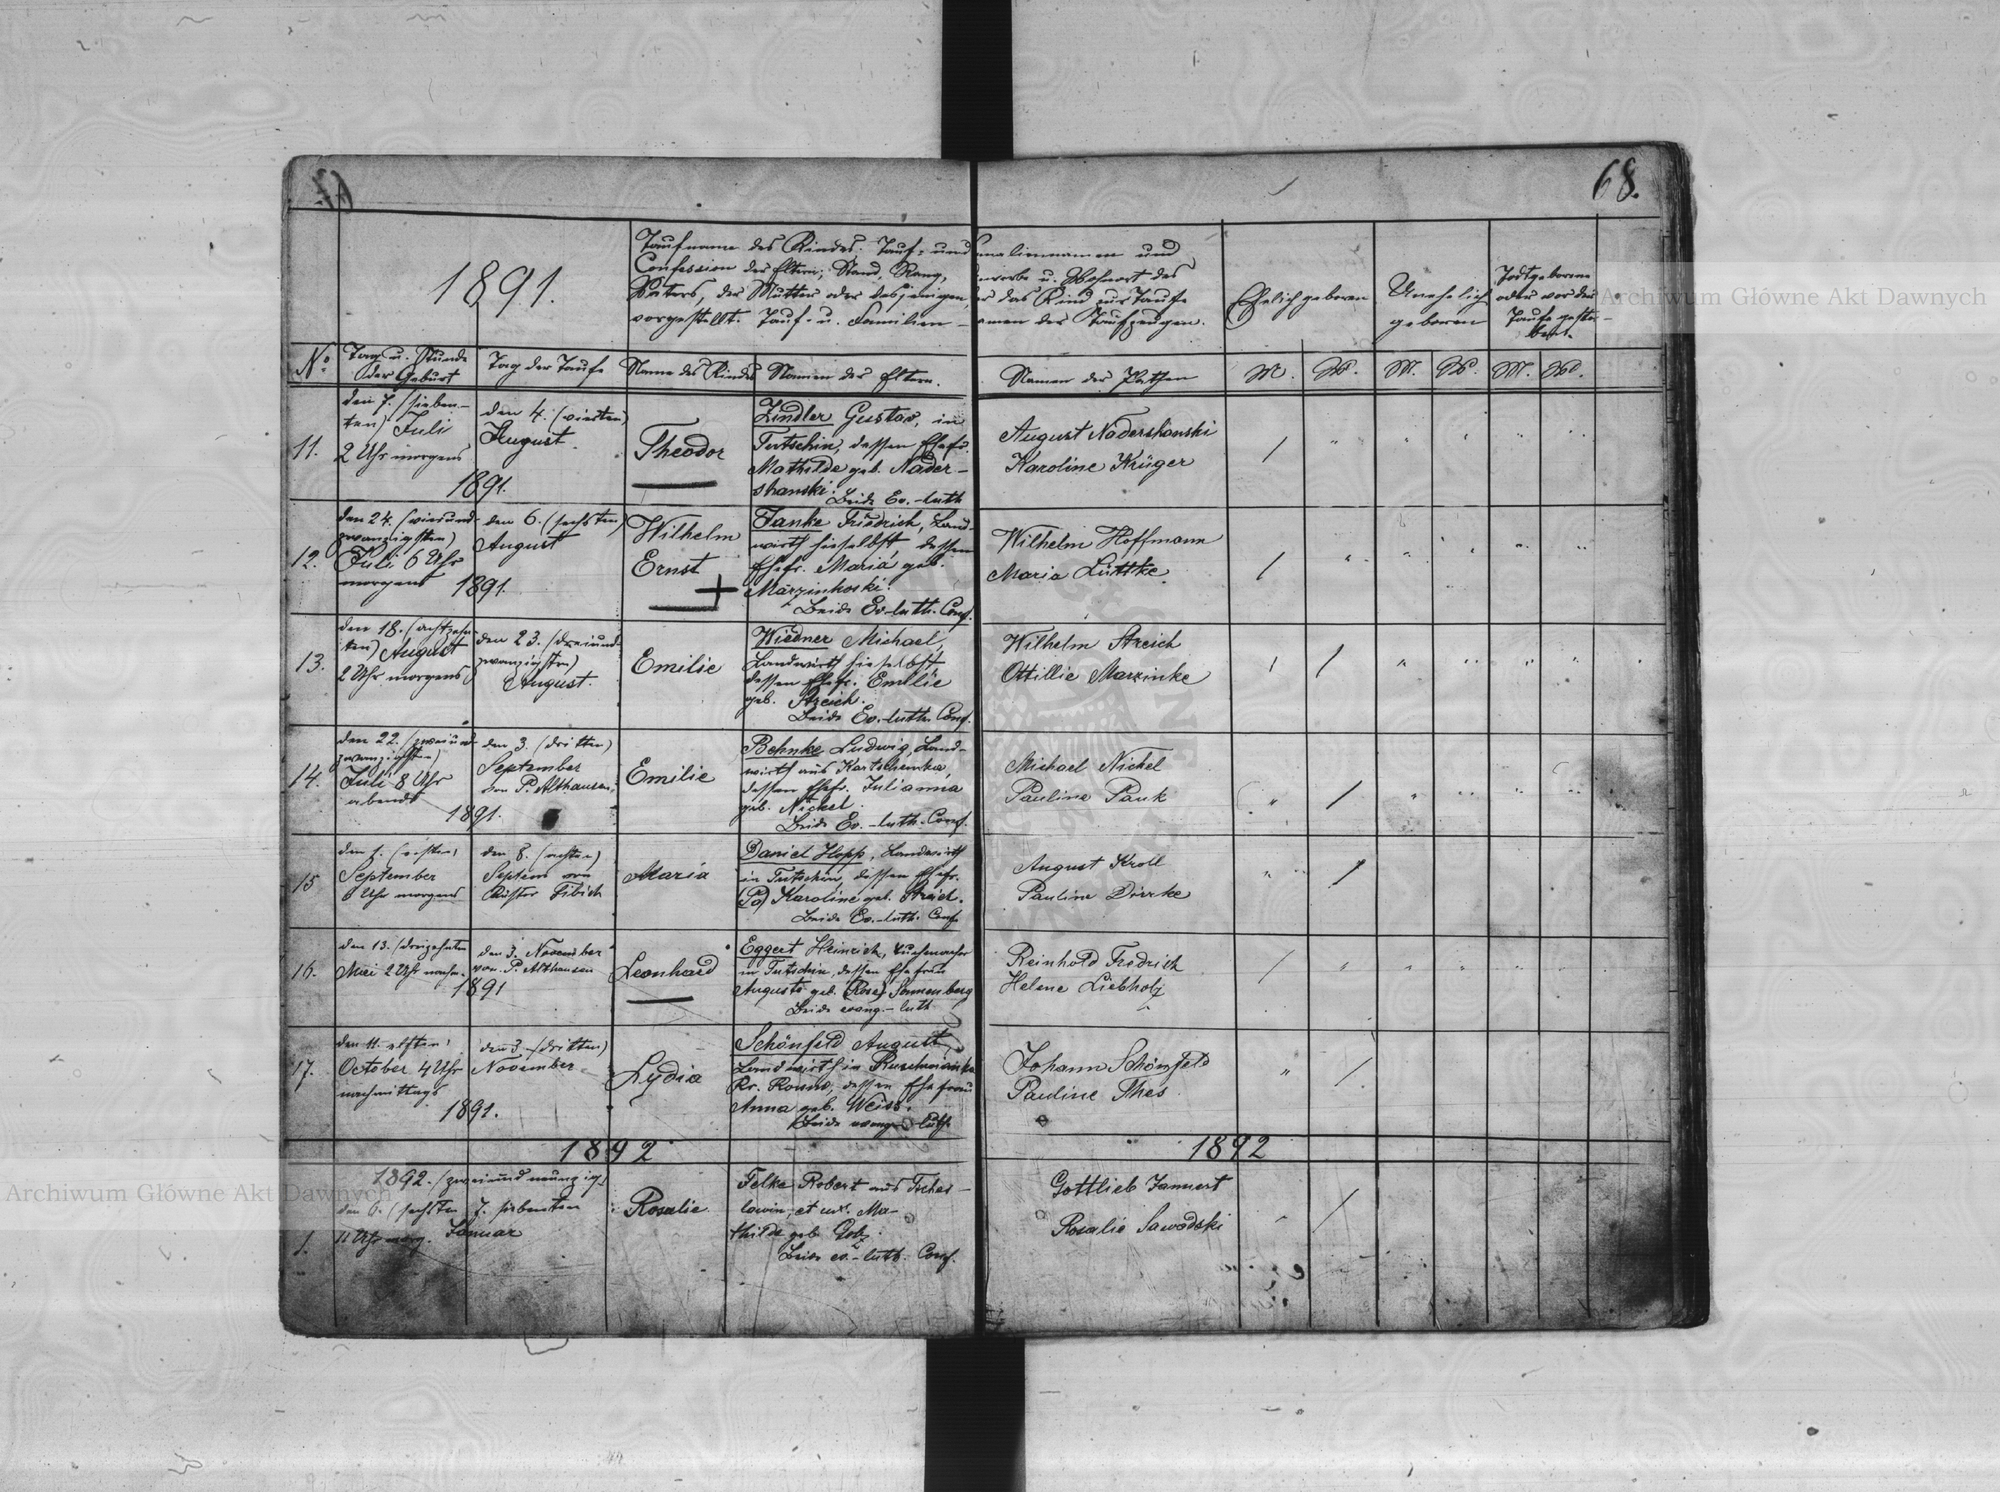 68.
1891.
Taufname des Kindes; Tauf- und Familiennamen und
Confession der Eltern; Stand, Rang, Gewerbe u. Wohnort des
Vaters, der Mutter oder desjenigen, der das Kind zur Taufe
vorgestellt. Tauf- u. Familien-namen der Taufzeugen.
Ehelich geboren
Unehelich
geboren
Todtgeborene
oder vor der
Taufe gestor-
ben.
No.
Tag u. Stunde
der Geburt
Tag der Taufe
Name des Kindes
Namen der Eltern.
Namen der Pathen
M. W. M. W. M. W.
11.
den 7. (sieben-
ten) Juli
2 Uhr morgens
1891.
den 4. (vierten)
August.
Theodor
Zindler Gustav, in
Tutschin, dessen Ehefr.
Mathilde geb. Nader-
shanski.
Beide Ev.-luth
August Nadershanski
Karoline Krüger
12.
den 24. (vierund-
zwanzigsten)
Juli 6 Uhr
morgens 1891.
den 6. (sechsten)
August
Wilhelm
Ernst
Janke Friedrich, Land-
wirth hieselbst, dessen
Ehefr. Maria geb.
Beide Ev.-luth. Conf.
Wilhelm Hoffmann
Maria Lüttke.
13.
den 18. (achtzehn-
ten) August
2 Uhr morgens
den 23. (dreiund-
zwanzigsten)
August.
Emilie
Wiedner Michael,
Landwirth hieselbst,
dessen Ehefr. Emilie
geb. Streich.
Beide Ev.-luth. Conf.
Wilhelm Streich
Ottillie Marzinke
14.
den 22. (zweiund-
zwanzigsten)
Juli 8 Uhr
abends
1891.
den 3. (dritten)
September
von P. Althausen
Emilie
Behnke Ludwig, Land-
wirth aus
dessen Ehefr. Julianna
geb. Nickel.
Beide Ev.-luth. Conf.
Michael Nickel
Pauline Pauk
15
den 1. (ersten)
September
Uhr morgens
den 8. (achten)
Septem von
Küster
Maria
Daniel Hopp, Landwirth
in Tutschin, dessen Ehefr.
Karoline geb. Streich.
Beide Ev.-luth. Conf
August Kroll
Pauline
16.
den 13. (dreizehnten
Mai 2 Uhr nachm.
1891
den 3. November
von P. Althausen
Leonhard
Eggert Heinrich, Tuchmacher
in Tutschin, dessen Ehefrau
Auguste geb. (Rose) Sonnenberg
Beide evang.-luth
Reinhold Fredrich
Helene Liebholz
17.
den 11. elften
October 4 Uhr
nachmittags
1891.
den 3. (dritten)
November
Lydia
Schönfeld August
Landwirth in
Kr. Rowno, dessen Ehefrau
Anna geb. Weiss.
Beide evangel. luth.
Johann Schönfeld
Pauline
1892
1892
1.
1892. (zweiundneunzig)
den 6. (sechsten 7. siebenten
11 Uhr morg. Januar
Rosalie
Felke Robert aus
et ux. Ma-
thilde geb.
Beide ev.-luth. Conf.
Gottlieb Jannert
Rosalie Sawadski
Archiwum Główne Akt Dawnych
Archiwum Główne Akt Dawnych